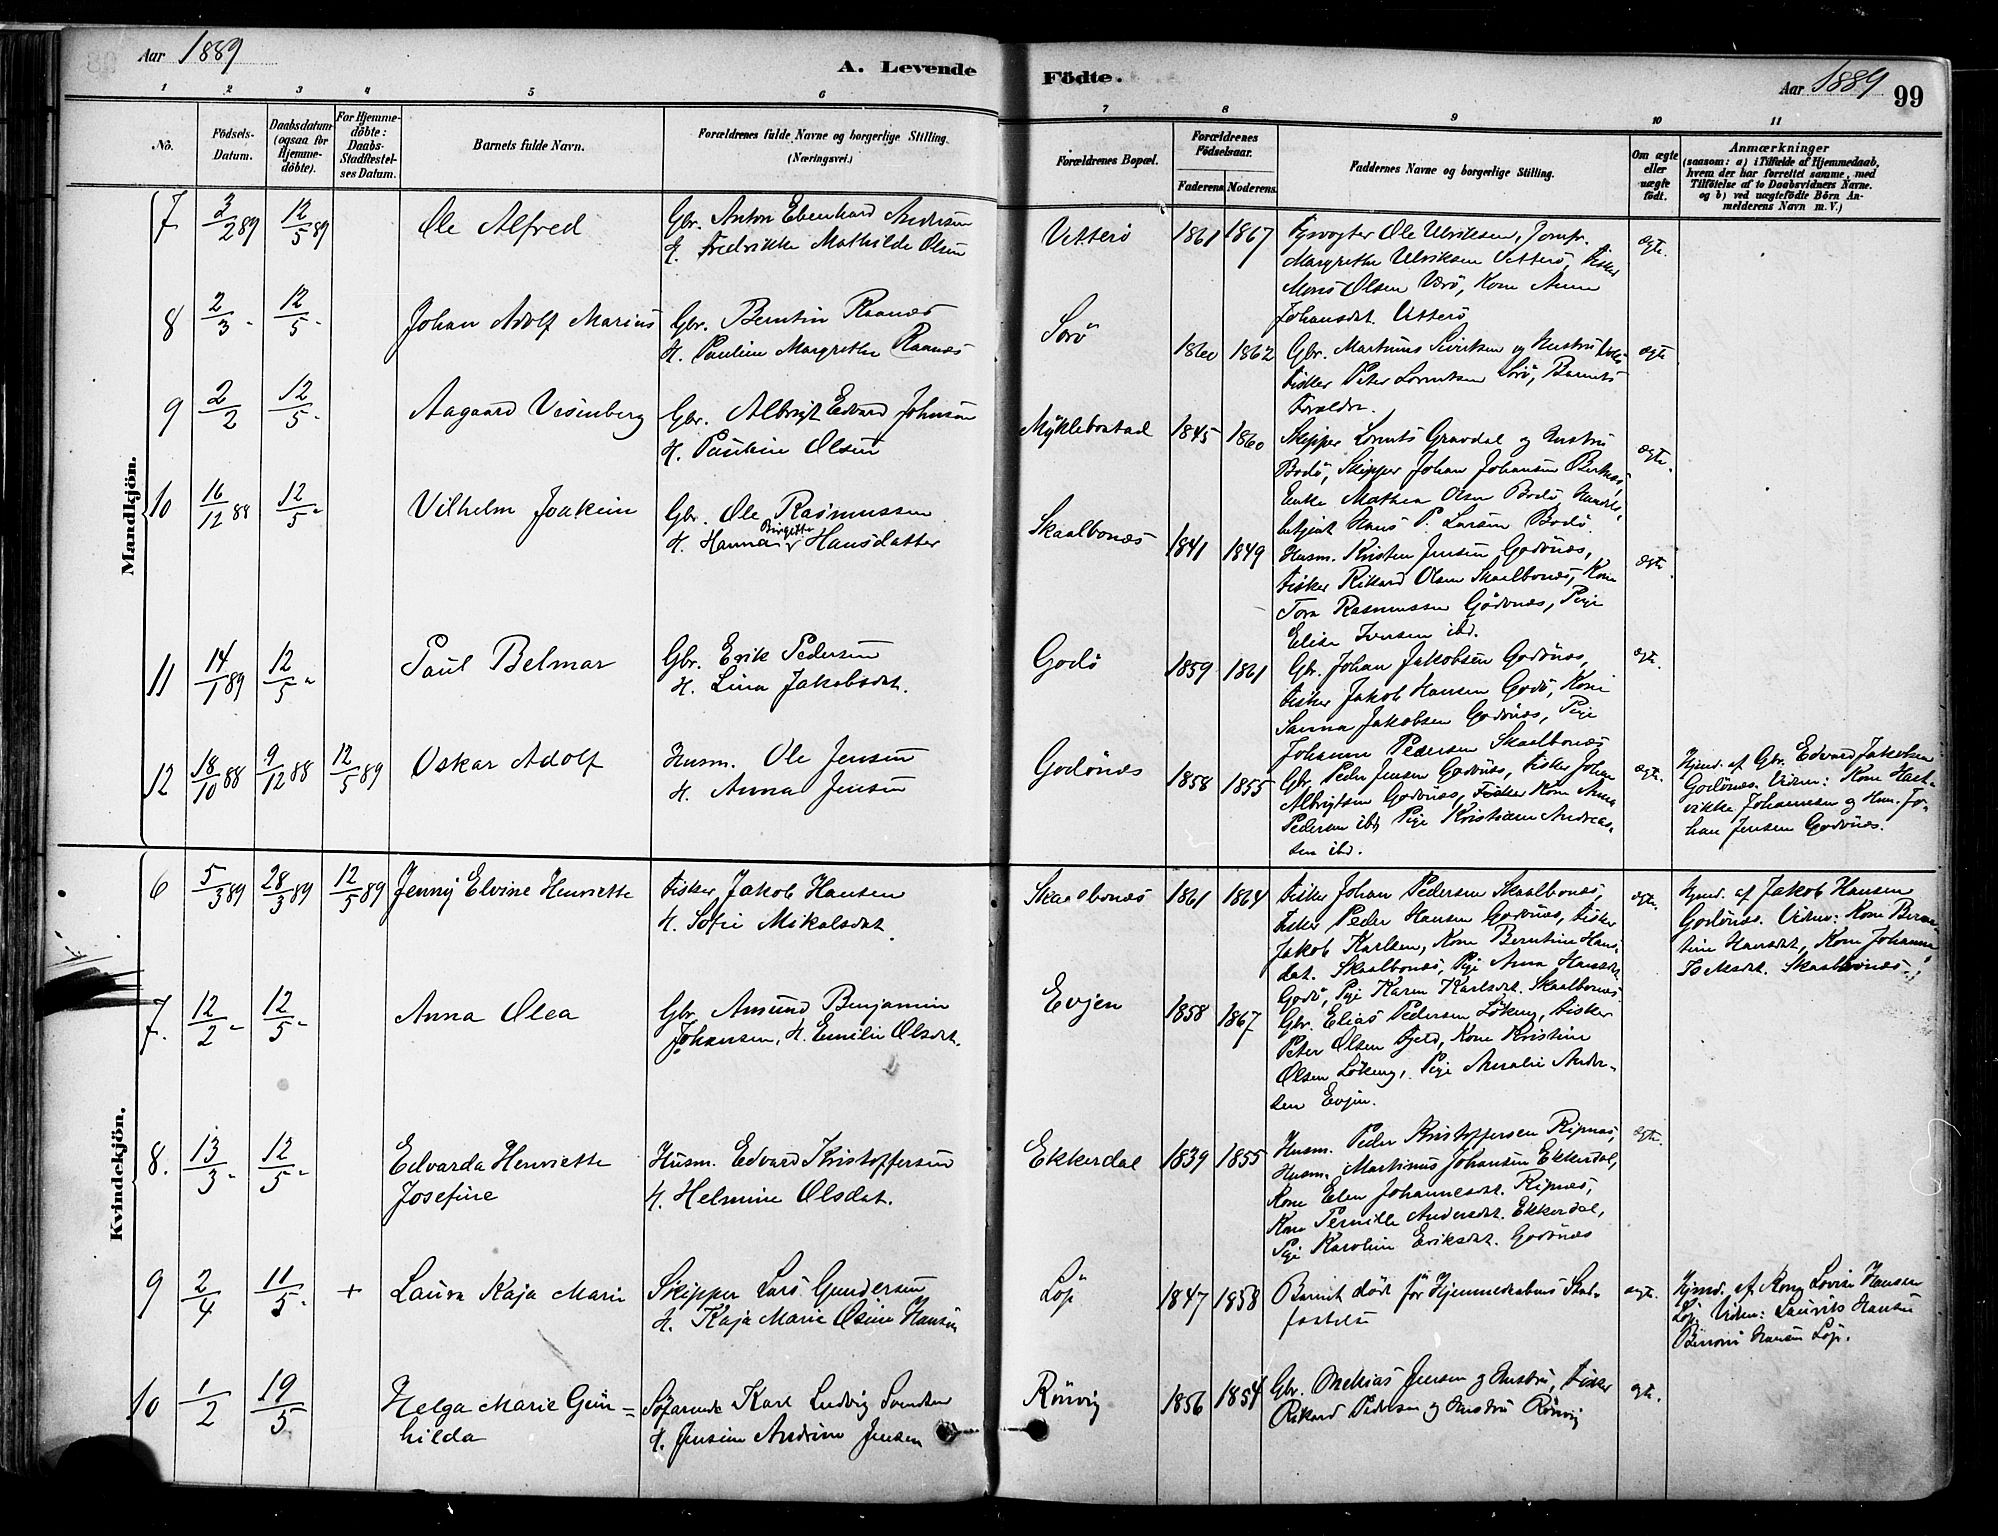 Aar 1889
A. Levende
Födte.
Aar 1889
99
1 2 3 4 5 6 7 8 9 10 11
No. Födsels-Datum. Daabsdatum (ogsaa for Hjemme-döbte). For Hjemme-döbte: Daabs-Stadfæstel-ses Datum. Barnets fulde Navn. Forældrenes fulde Navne og borgerlige Stilling. (Næringsvei.) Forældrenes Bopæl. Forældrenes Födselsaar. Faderens. Moderens. Faddernes Navne og borgerlige Stilling. Om ægte eller uægte födt. Anmærkninger (saasom: a) i Tilfælde af Hjemmedaab, hvem der har forrettet samme, med Tilföielse af to Daabsvidners Navne. og b) ved uægtefödte Börn An-melderens Navn m. V.)
Mandkjön.
7 3/2 89 12/5 89 Ole Alfred
Gbr. Anton Ebenhard Andersen
H. Fredrikke Mathilde Olsen
Vetterö 1861 1867
Fyrvogter Ole Ulriksen, Jomfr.
Margrethe Ulriksen Vetterö, Fisker
Mons Olsen Værö, Kone Anne
Johansdt. Vetterö
ægte.
8 2/3 - 12/5 - Johan Adolf Marius
Gbr. Berntin Raanes
H. Pauline Margrethe Raanes
Sorö 1860 1862
Gbr. Martinus Sivertsen og Hustru
Fisker Peter Lorentsen Sörö, Barnets
Forældre.
ægte
9 2/2 12/5 - Aagaard Vesenberg
Gbr. Albrigt Edvard Johnsen
H. Pauline Olsen
Myklebostad 1845 1860
Skipper Lorents Gravdal og Hustru
Bodö, Skipper Johan Johansen
Enke Mathea Olsen Bodö, Handels-
betjent Hans P. Larsen Bodö
ægte.
10 16/12 88 12/5 - Vilhelm Joakim
Gbr. Ole Rasmussen
H. Hanna Birgitte Hansdatter
Skaalbones 1841 1849
Husm. Kristen Jensen Godönes,
Fisker Rikard Olsen Skaalbones, Kone
Tora Rasmussen Godönes, Pige
Elisa Iversen ibd.
ægte.
11 14/1 89 12/5 - Paul Belmar
Gbr. Erik Pedersen
H. Lina Jakobsdt.
Godö 1859 1861
Gbr. Johan Jakobsen Godönes,
Fisker Jakob Hansen Godö, Kone
Sanna Jakobsen Godönes, Pige
Johanna Pedersen Skaalbones
ægte.
12 18/10 88 9/12 88 12/5 89 Oskar Adolf
Husm. Ole Jensen
H. Anna Jensen
Godönes 1858 1855
Gbr. Peder Jensen Godönes, Fisker Johan
Albrigtsen Godönes, Fisker Kone Anna
Pedersen ibd, Pige Kristiane Andreas-
sen ibd.
ægte.
Hjmd. af Gbr. Edvard Jakobsen
Godönes. Vidner: Kone Hart-
vikke Johannesen og Hsm. Jo-
han Jensen Godönes.
Kvindekjön.
6 5/3 89 28/3 89 12/5 89 Jenny Elvine Henriette
Fisker Jakob Hansen
H. Sofie Mikalsdat.
Skaalbones 1861 1864
Fisker Johan Pedersen Skaalbones,
Fisker Peder Hansen Godönes, Fisker
Jakob Karlsen, Kone Berntine Hans-
dat. Skaalbones, Pige Anna Hansdt.
Godö, Pige Karen Karlsdt. Skaalbones
ægte.
Hjmd. af Jakob Hansen
Godönes. Vidner: Kone Bern-
tine Hansdt, Kone Johanna
Isaksdt. Skaalbones.
7. 12/2 - 12/5 - Anna Olea
Gbr. Amund Benjamin
Johansen, H. Emilie Olsdt.
Evjen 1858 1867
Gbr. Elias Pedersen Lökeng, Fisker
Peter Olsen Fjeld, Kone Kristine
Olsen Lökeng, Pige Amalie Ander-
sen Evjen.
8. 13/3 - 12/5 - Edvarda Henriette
Josefine
Husm. Edvard Kristoffersen
H. Helmine Olsdat.
Ekkerdal 1839 1855
Husm. Peder Kristoffersen Ripnes,
Husm. Martinus Johansen Ekkerdal,
Kone Elen Johannesdt. Ripnes,
Kone Pernille Andersdt. Ekkerdal,
Pige Karoline Eriksdt. Godönes
ægte.
9 2/4 11/5 - + Laura Kaja Marie
Skipper Lars Gundersen
H. Kaja Marie Osine Hansen
Löp 1847 1858
Barnet död för Hjemmedaabens Stad-
fæstelse
ægte.
Hjmd. af Kone Lovise Hansen
Löp. Vidner: Laurits Hansen
Hansen Löp.
10 1/2 19/5 Helga Marie Gun=
hilda
Söfarende Karl Ludvig Svendsen
H. Jensine Andrine Jensen
Rönvig 1856 1854
Gbr. Mekias Jensen og Hustru, Fisker
Rikard Pedersen og Hustru Rönvig
ægte.